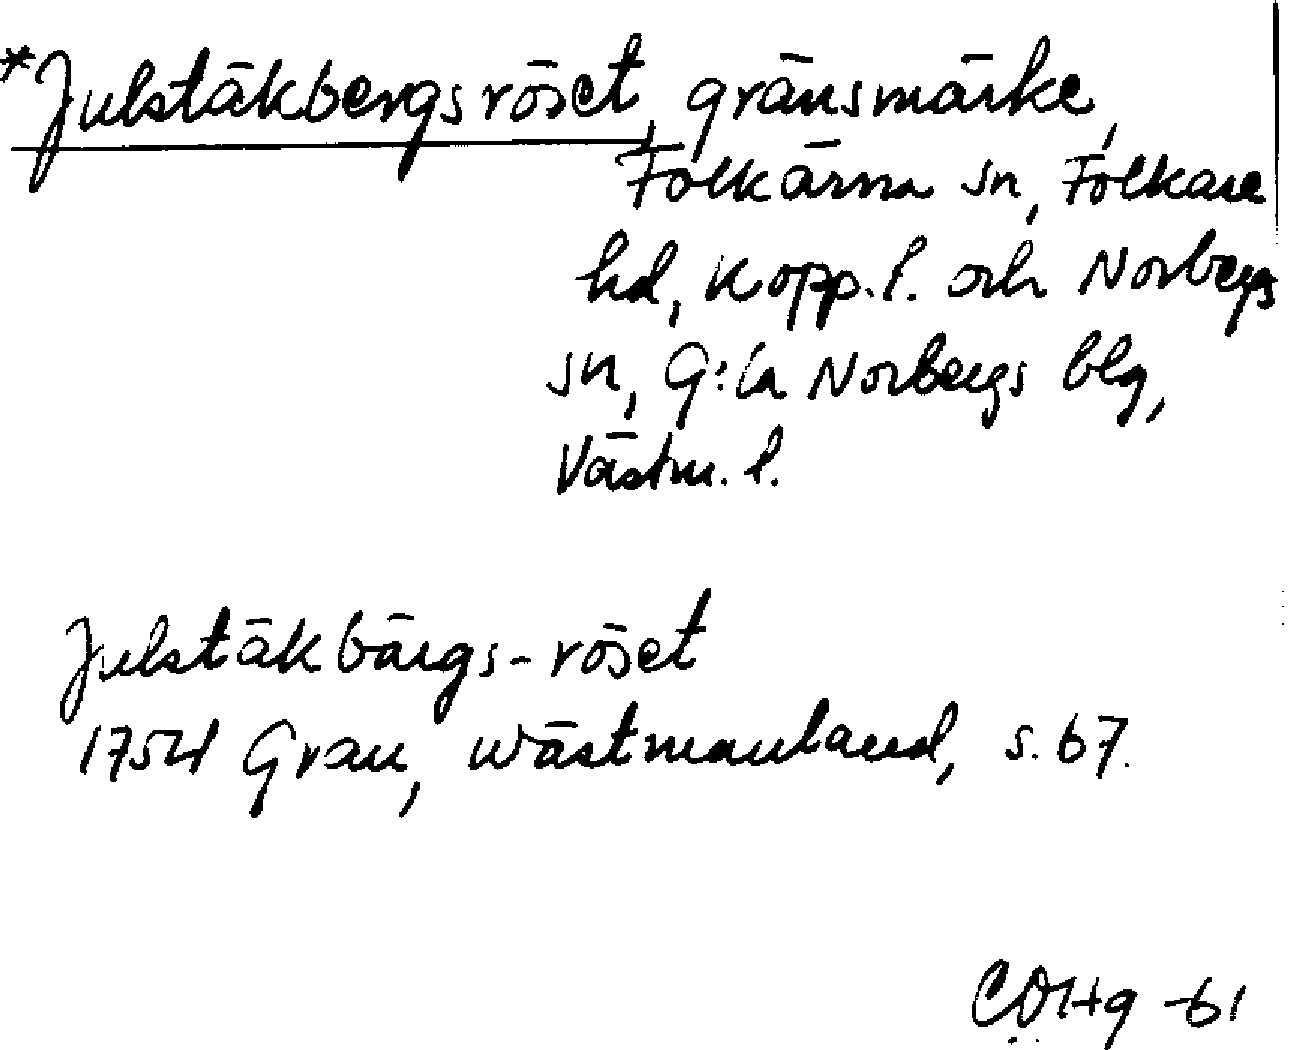 *Julstäkbergsröset, gränsmärke,
Folkärna sn, Folkare
hd, Kopp. l. och Norbergs
sn, G:la Norbergs blg,
Västm. l.
Julstäkbärgs-röset
1754 Grau, Wästmanland, s. 67.
-61